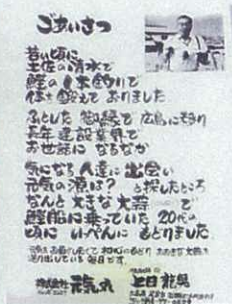 ごあいさつ
若い頃に
土佐の清水で
鰹の1本釣りで
体を鍛えて おりました
ふとした 御縁で 広島に
長年 建設業界で
お世話に なるなか
気になる 人達に 出会い
元気の源は? と探したところ
なんと 大きな 大蒜 で
鰹船に 乗っていた 20代の
頃に いっぺんに もどりました
元気を お届けしたくて
毎日です
株式会社 元気